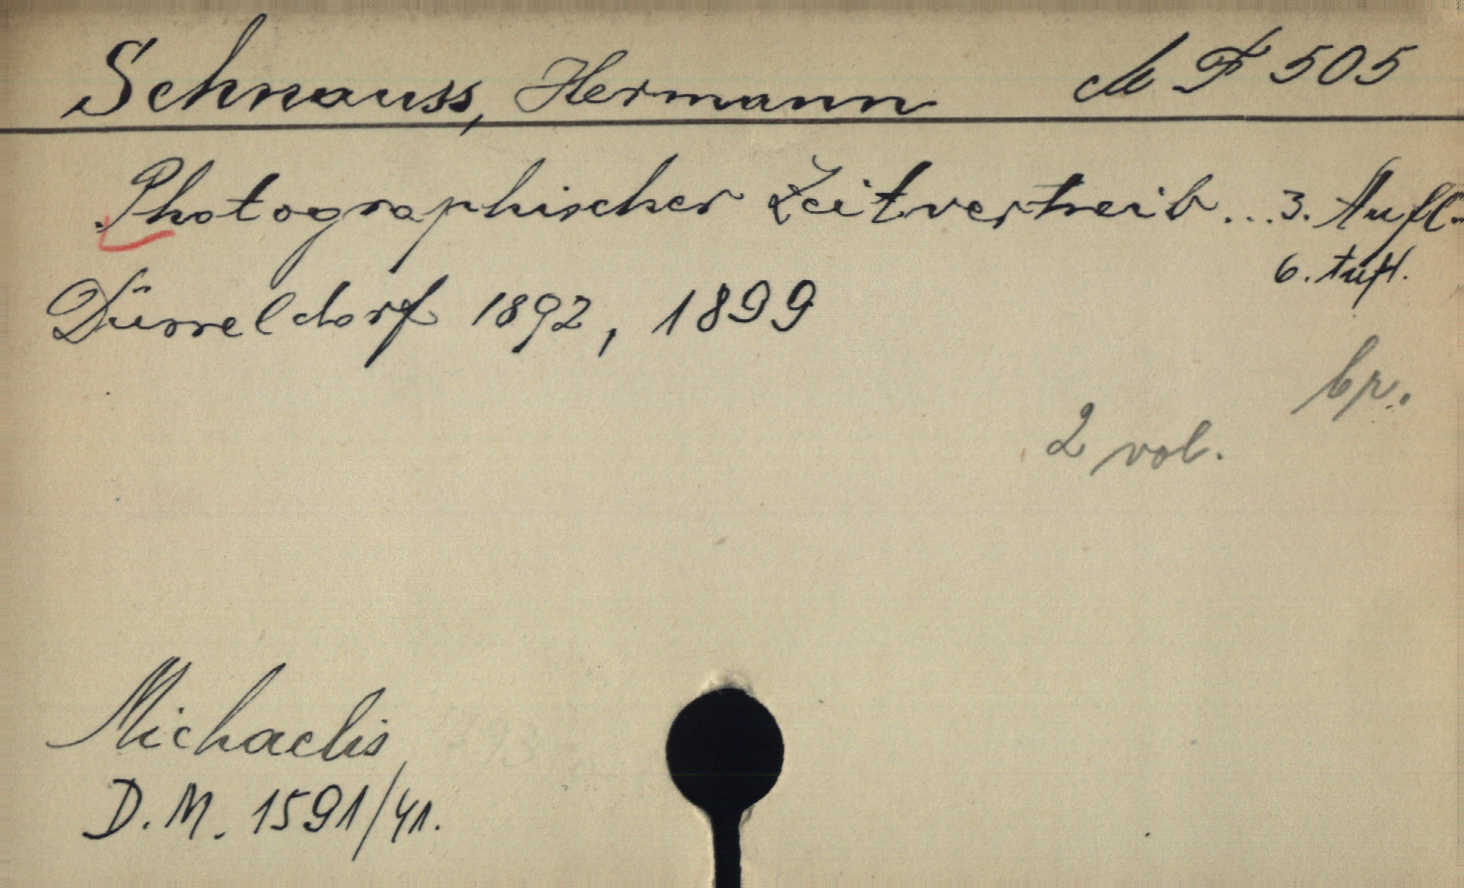 Schnauss, Hermann M F 505
Photographischer Zeitvertreib... 3. Aufl.
6. Aufl.
Düsseldorf 1892, 1899
2 vol.
Michaelis
D. M. 1591/41.